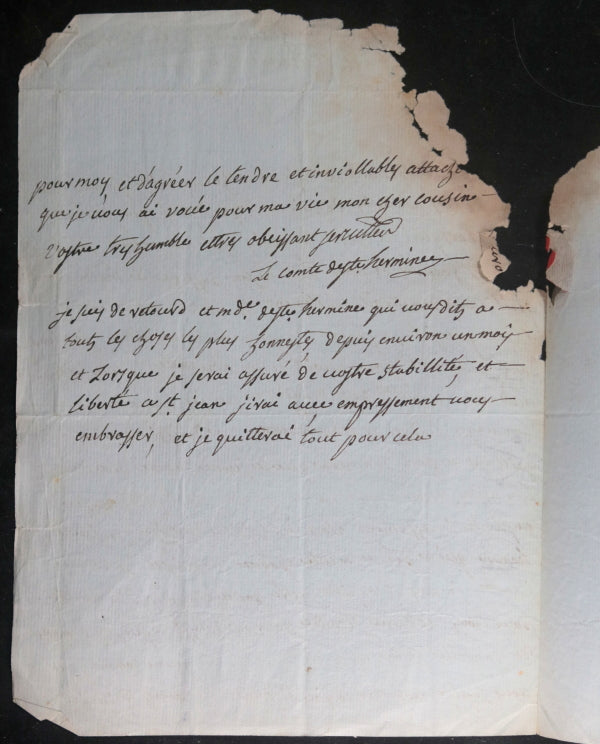 pour moy et d'agréer le tendre et inviollables attache
que je vous ai vouée pour ma vie mon cher cousin
vostre tres humble et tres obeissant serviteur
Le comte de ste hermine
je suis de retourd et mde de ste hermine qui vous dits a
touts les choses les plus honnestes depuis environ un mois
et Lorsque je serai assuré de vostre stabillité et
liberté a st jean j'irai avec empressement vous
embrasser, et je quitterai tout pour cela